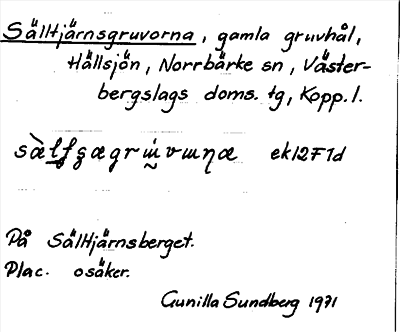 Sältjärnsgruvorna, gamla gruvhål,
Hällsjön, Norrbärke sn, Väster-
bergslags doms. tg, Kopp. l.
ek12F1d
På Sältjärnsberget.
Plac. osäker.
Gunilla Sundberg 1971